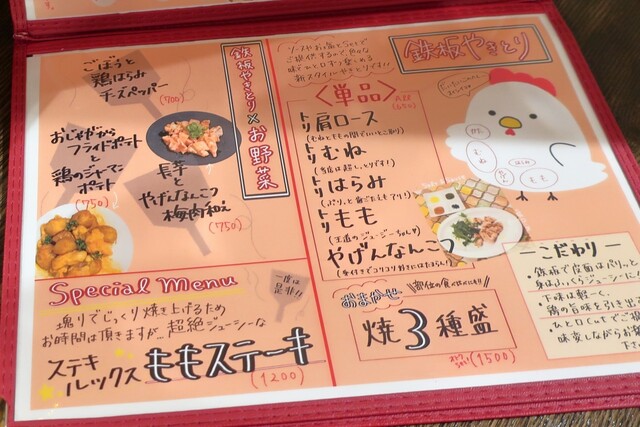 鉄板やきとり×お野菜
ごぼうと
鶏はらみ
チーズペッパー
(700)
おじゃがから
フライドポテト
と
鶏のジャーマン
ポテト
(750)
長芋
と
やげんなんこつ
梅肉和え
(750)
Special Menu
一度は
是非!!
塊りでじっくり焼き上げるため
お時間は頂きますが…超絶ジューシーな
ステキ
ルックス
ももステーキ
(1200)
鉄板やきとり
<単品>
ALL
トリ肩ロース
トリむね
トリはらみ
トリもも
(王道のジューシーちゃんず)
やげんなんこつ
かた
むね
はらみ
もも
おまかせ
部位の食べ比べに!!
焼3種盛
(1500)
ーこだわりー
・鉄板で皮面はパリッと
身はふっくらジューシーに
・下味は軽く、
鶏の旨味を引き出
・ひと口cutでご提
味変しながらお楽
下さ